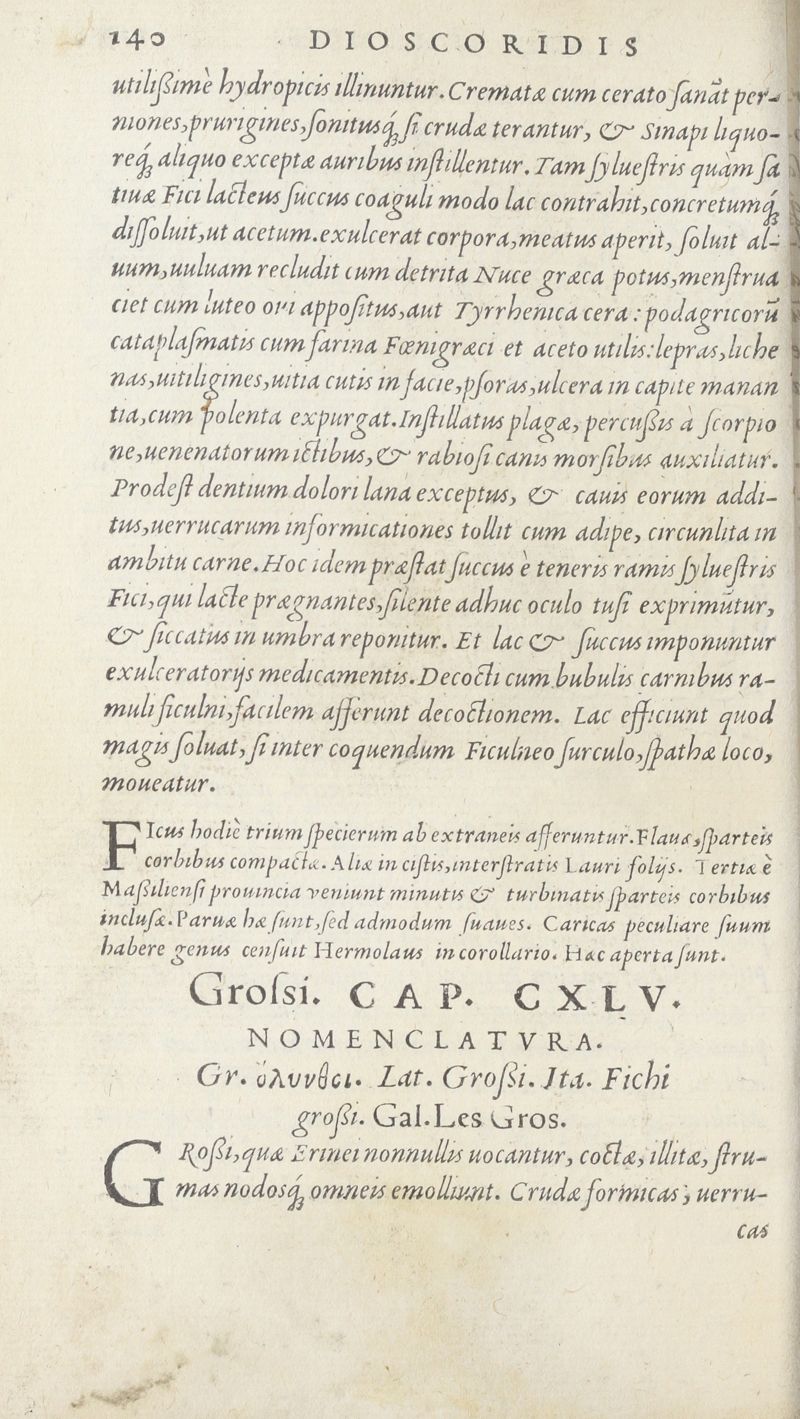 140 DIOSCORIDIS
utilißime hydropicis illinuntur. Crematæ cum cerato sanāt per-
niones, prurigines, sonitusq́; si crudæ terantur, & Sinapi liquo-
req́; aliquo exceptæ auribus instillentur. Tam syluestris quàm sa
tiuæ Fici lacteus succus coaguli modo lac contrahit, concretumq́;
dissoluit, ut acetum. exulcerat corpora, meatus aperit, soluit al-
uum, uuluam recludit cum detrita Nuce græca potus, menstrua
ciet cum luteo oui appositus, aut Tyrrhenica cera: podagricorū
cataplasmatis cum farina Fœnigræci et aceto utilis: lepras, liche
nas, uitiligines, uitia cutis in facie, psoras, ulcera in capite manan
tia, cum polenta expurgat. Instillatus plagæ, percußis à scorpio
ne, uenenatorum ictibus, & rabiosi canis morsibus auxiliatur.
Prodest dentium dolori lana exceptus, & cauis eorum addi-
tus, uerrucarum informicationes tollit cum adipe, circunlita in
ambitu carne. Hoc idem præstat succus è teneris ramis syluestris
Fici, qui lacte prægnantes, silente adhuc oculo tusi exprimūtur,
& siccatus in umbra reponitur. Et lac & succus imponuntur
exulceratorijs medicamentis. Decocti cum bubulis carnibus ra-
muli ficulni, facilem afferunt decoctionem. Lac efficiunt quod
magis soluat, si inter coquendum Ficulneo surculo, spathæ loco,
moueatur.
FIcus hodie trium specierum ab extraneis afferuntur. Flauæ, sparteis
corbibus compactæ. Aliæ in cistis, interstratis Lauri folijs. Tertiæ è
Maßiliensi prouincia veniunt minutis & turbinatis sparteis corbibus
inclusæ. Paruæ hæ sunt, sed admodum suaues. Caricas peculiare suum
habere genus censuit Hermolaus in corollario. Hæc aperta sunt.
Grossi. CAP. CXLV.
NOMENCLATVRA.
Gr. ὄλυνθοι. Lat. Großi. Ita. Fichi
großi. Gal. Les Gros.
GRoßi, quæ Erinei nonnullis uocantur, coctæ, illitæ, stru-
mas nodosq́; omneis emolliunt. Crudæ formicas, uerru-
cas